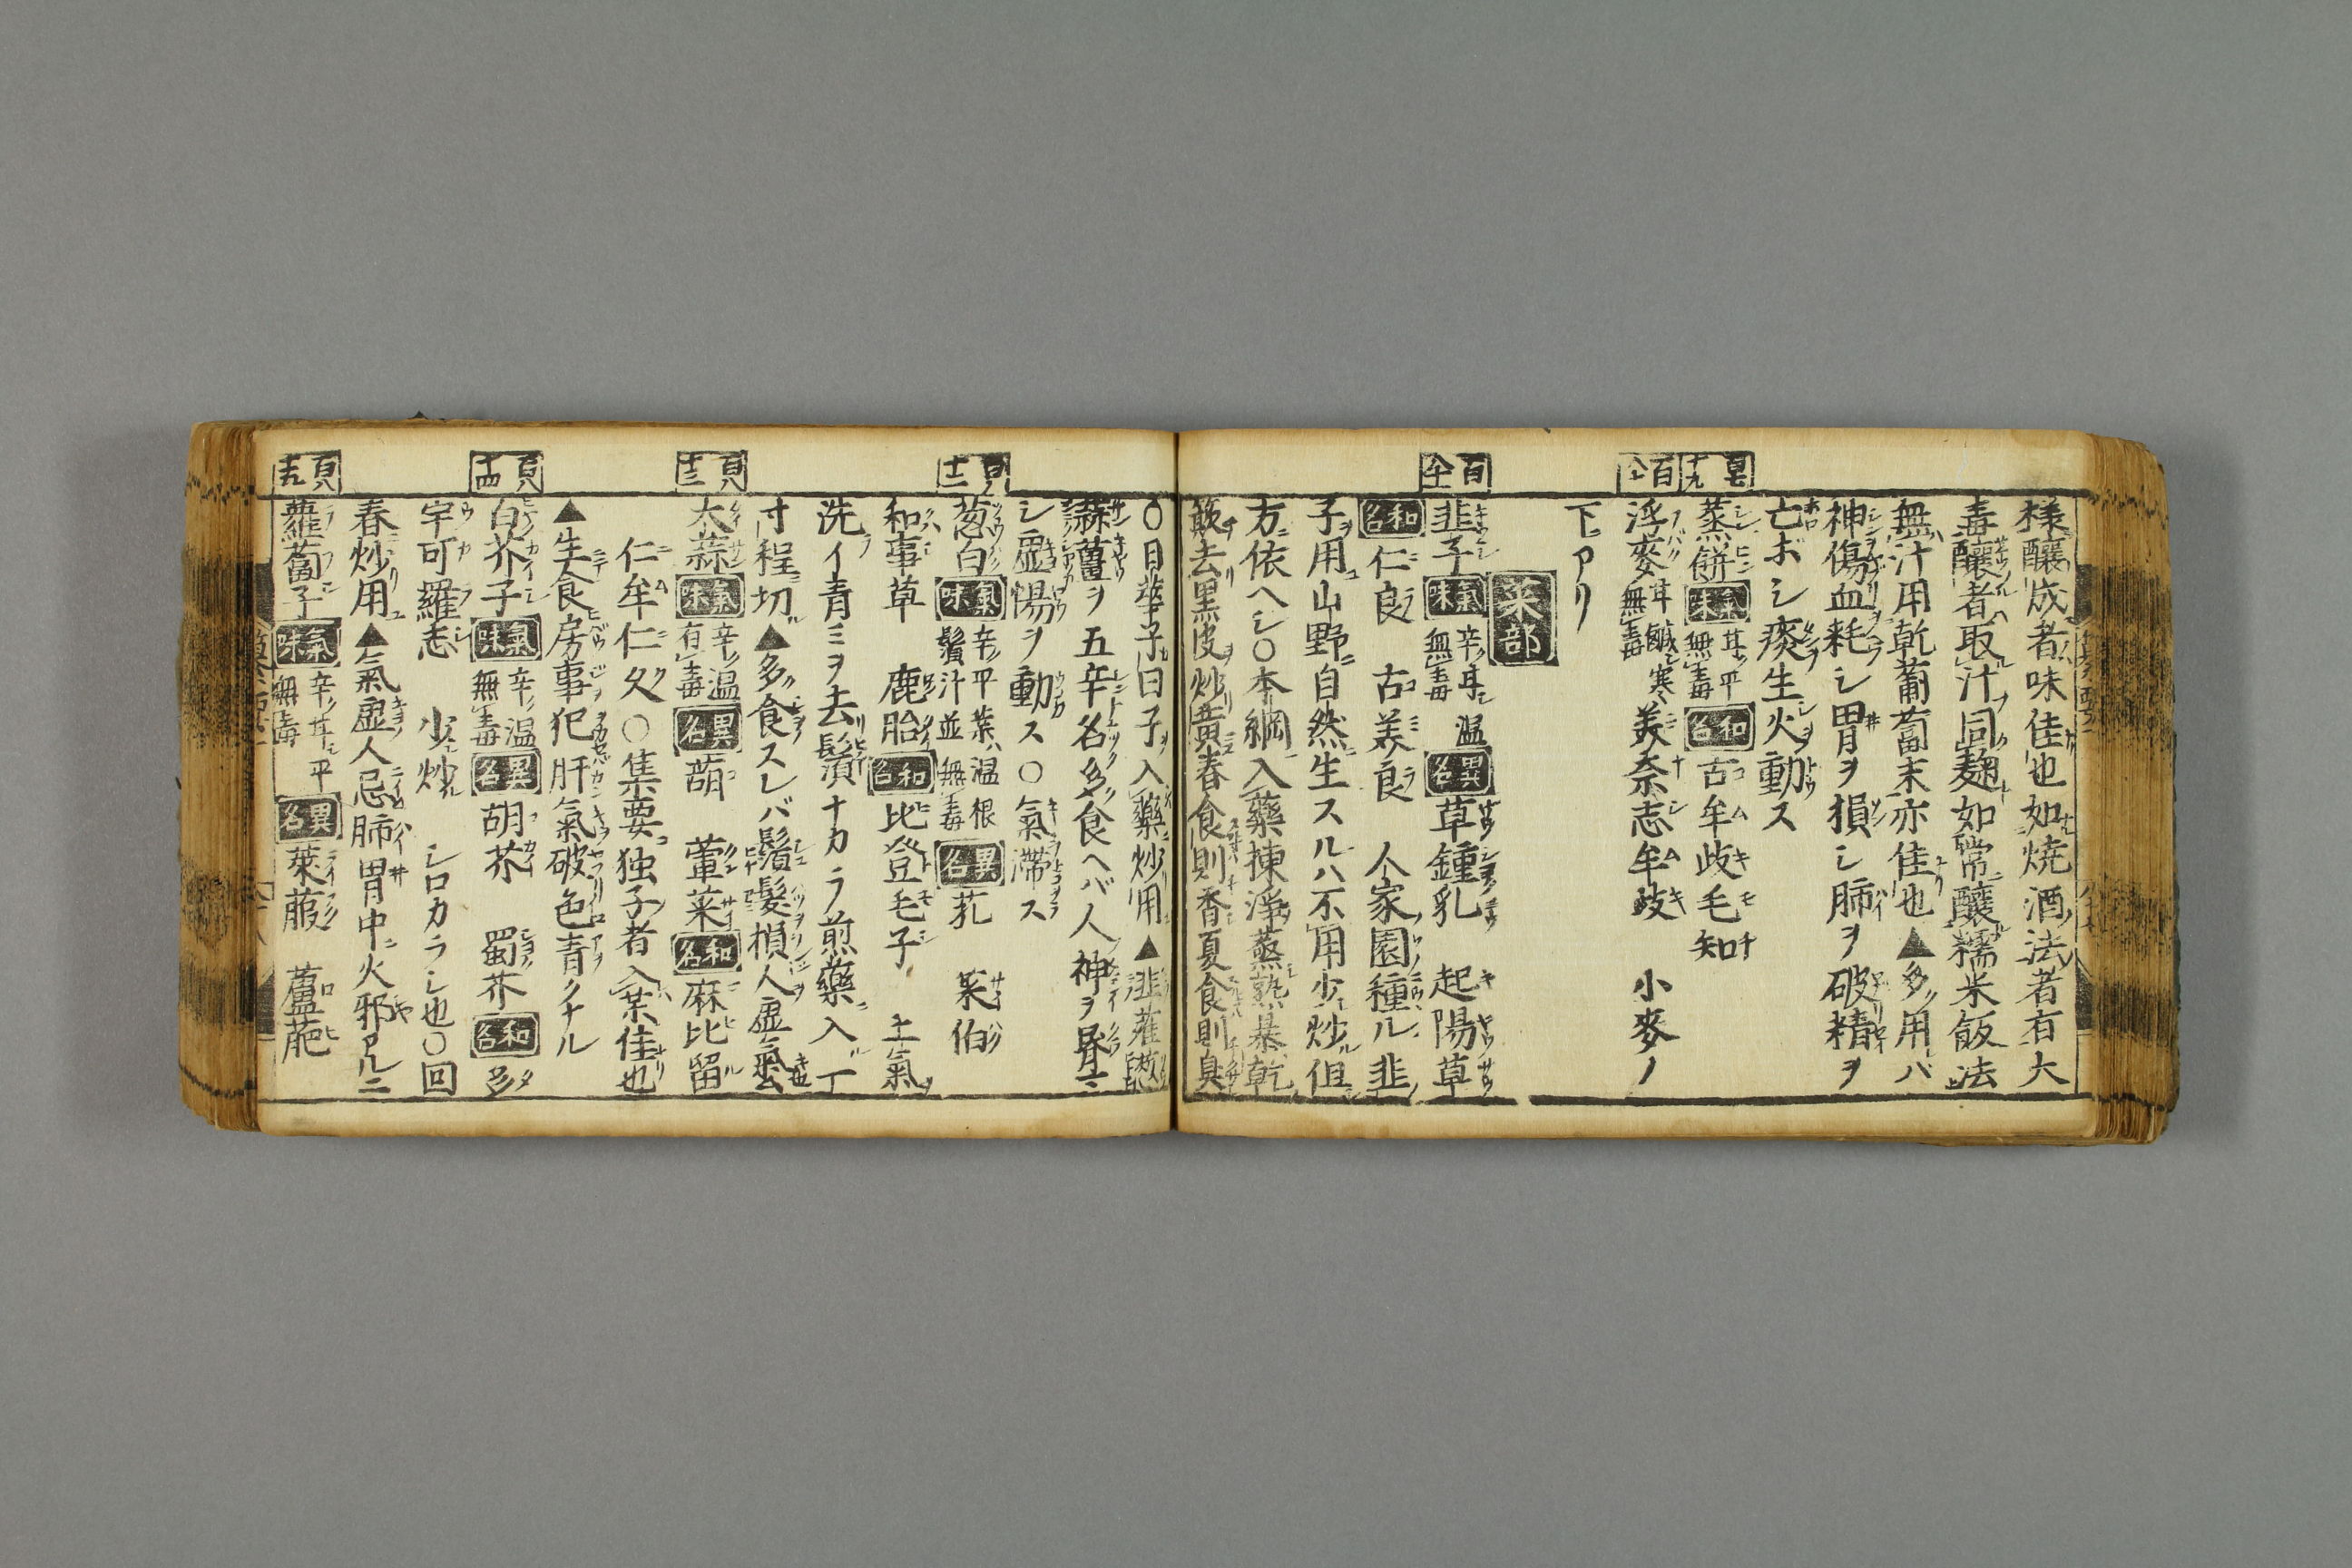 様釀成者味佳也如燒酒法者有大
毒釀者取汁同麹如常釀糯米飯法
無汁用乾葡萄末亦佳也▲多用バ
神傷血耗シ胃ヲ損シ肺ヲ破精ヲ
亡ボシ痰生火動ス
百七十九
蒸餅 氣味 甘平無毒 和名 古牟岐毛知
百八十
浮麥 甘鹹寒無毒 美奈志牟岐 小麥ノ
下ニアリ
菜部
百八十一
韭子 氣味 辛甘温無毒 異名 草鍾乳 起陽草
和名 仁良 古美良 人家園種ル韭ノ
子ヲ用山野自然生スルハ不用少炒但
方依ヘシ○本綱入藥揀淨蒸熟暴乾
簸去黒皮炒黄春食則香夏食則臭
○日華子曰子入藥炒用▲韭薤葱
蒜薑ヲ五辛名多食ヘバ人神ヲ昬
シ虚陽ヲ動ス○氣滯ス
葱白 氣味 辛平葉温根鬚汁並無毒 異名 芤 菜伯
和事草 鹿胎 和名 比登毛子 土氣
洗イ青ミヲ去鬚ナカラ煎藥入一
寸程切▲多食スレバ鬚髮損人虚氣
大蒜 氣味 辛温有毒 異名 葫 葷菜 和名 麻比留
仁牟仁久○集要独子者入藥佳也
▲生食房事犯肝氣破色青クナル
白芥子 氣味 辛温無毒 異名 胡芥 蜀芥 和名 多
宇可羅志 少炒 シロカラシ也○回
春炒用▲氣虚人忌肺胃中火邪アルニ
蘿蔔子 氣味 辛甘平無毒 異名 萊菔 蘆萉